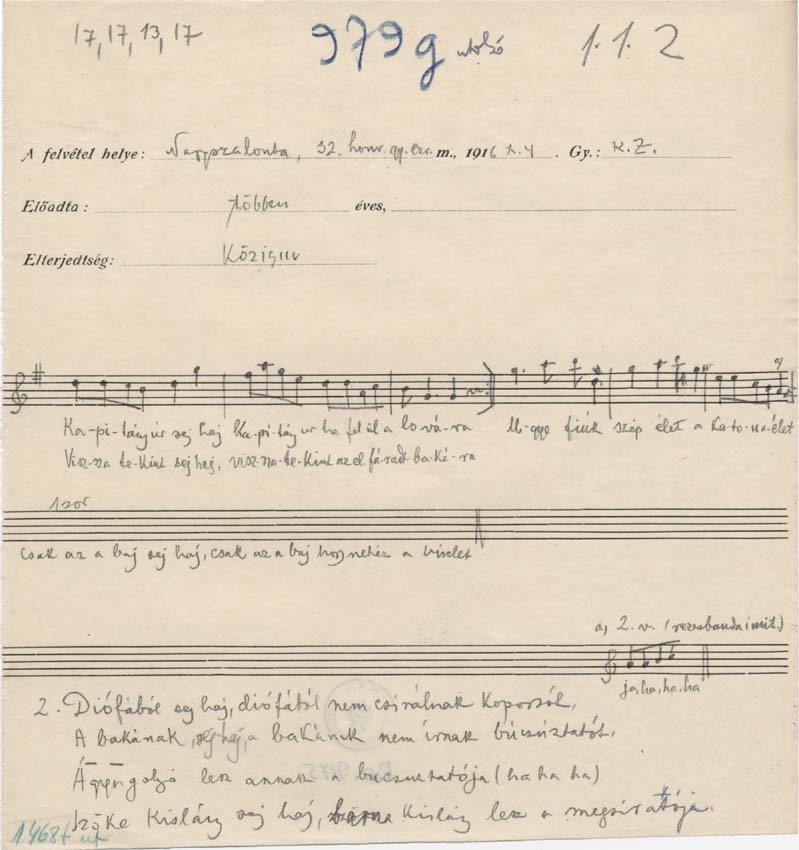 17, 17, 13, 17 979g utolsó 1. 1. 2
A felvétel helye: Nagyszalonta, 32. honv. gy. ezr. m., 1916 X. 4. Gy.: K. Z.
Előadta: többen éves,
Elterjedtség: Közism
a)
Ka-pi-tány úr sej haj Ka-pi-tány ur ha fel ül a lo-vá-ra U-gye fiúk szép élet a ka-to-na élet
Visz-sza te-kint sej haj, visz-sza-te-kint az el fá-radt ba-ká-ra
1szor
Csak az a baj sej haj, csak az a baj hogy nehéz a viselet
a, 2. v. (rezesbanda imit.)
ja, ha, ha, ha
2. Diófából sej haj, diófából nem csinálnak koporsót,
A bakának, sej haj, a bakának nem írnak búcsúztatót,
Ágyúgolyó lesz annak a búcsuztatója (ha ha ha)
Szőke kislány sej haj, barna kislány lesz a megsiratója.
1468f